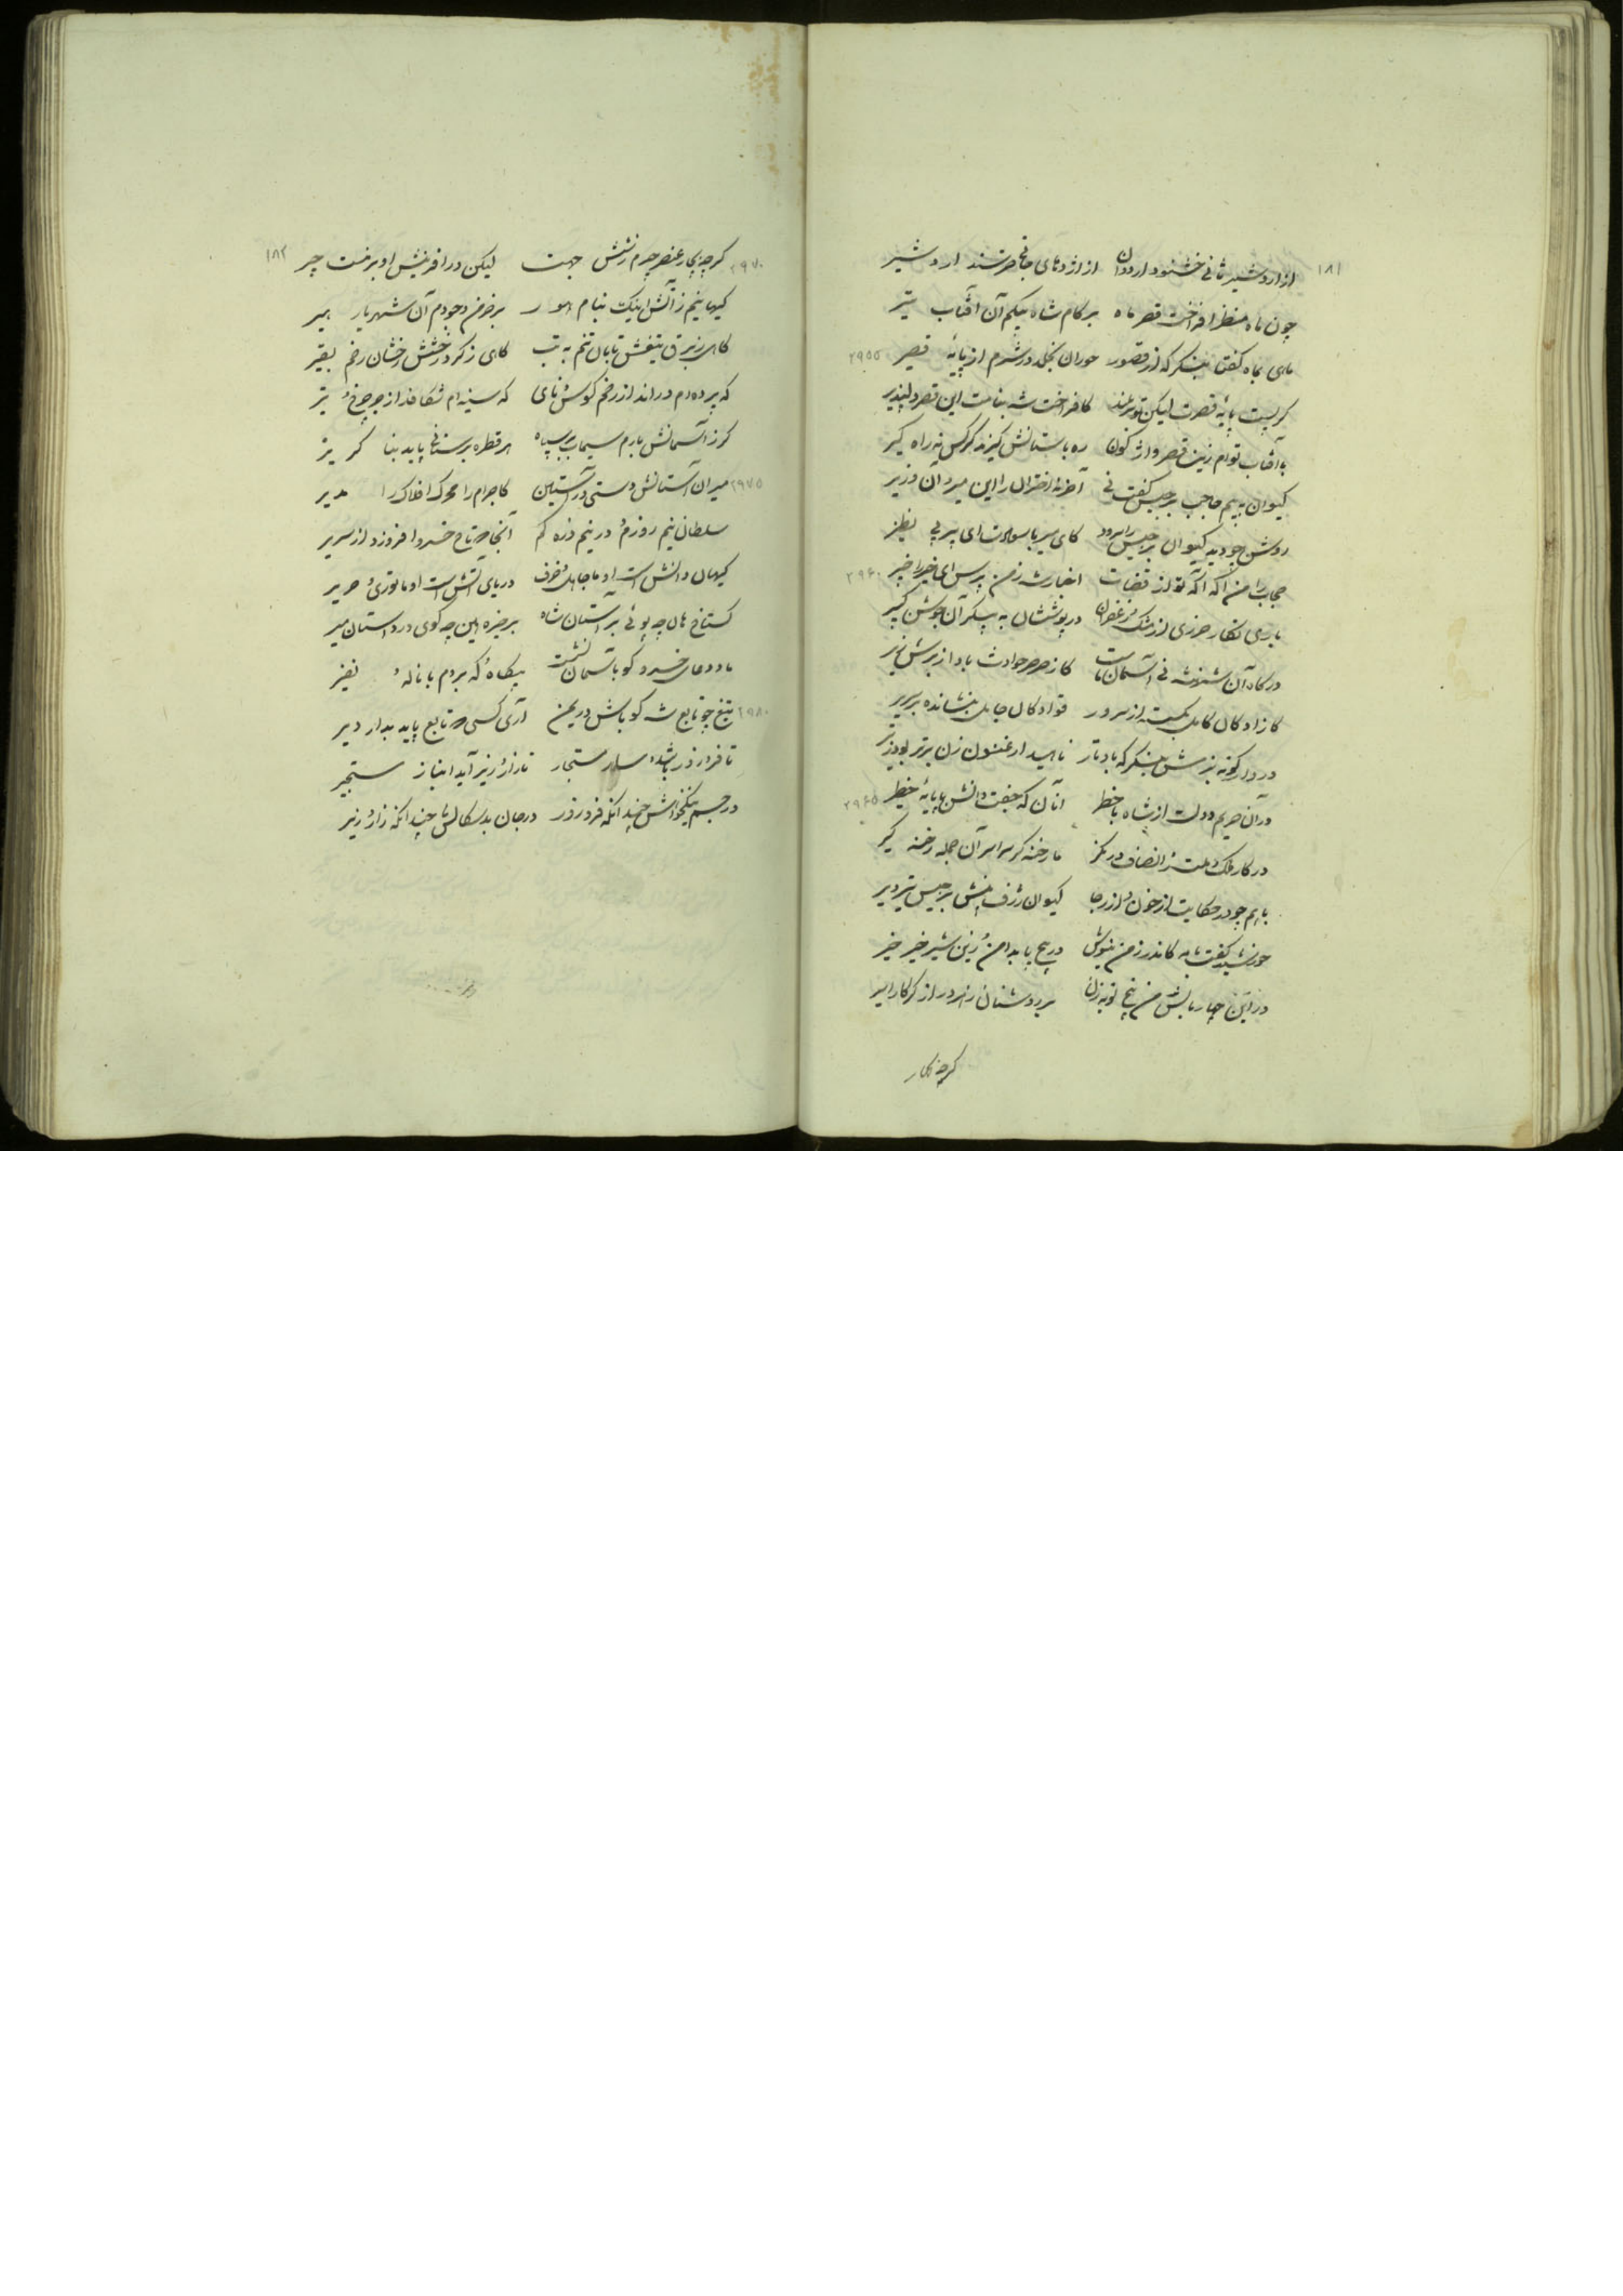 ۱۸۱
از اردشیر ثانی خشنود اردوان از اژدهای جانی خرسند اردشیر
چون ماه منظر افراخت قصر ماه بر کام شاه بیکم آن آفتاب تیر
ماهی بماه گفتا بنگر که از قصور حوران بخلد در شرم از پایهٔ قصیر ۲۹۵۵
گر پست پایهٔ قصرت لیکن تو سربلند کافراخت شه بنامت این قصر دلپذیر
با آفتاب توام زین قصر واژگون ره باستانش گیرند گر کس نه راه گیر
کیوان به بیم حاجب برجیس گفت نی آخر نه اختران را این میر و آن وزیر
روشن چو دید کیوان برجیس را سرود کای سیر با سعادت ای پیر بی نظیر
حجاب را من آگه آگه تو از قضات اخبار شه ز من پرس ای خیر را خبیر ۲۹۶۰
باری نگار حرزی از مشک و زعفران در پوششان به پیکر آن جوشن کبیر
درگاه آن شهنشه نی آسمان ماست کز صرصر حوادث باد از برش
کازادگان کامل بگسسته از سرور قوادگان جاهل بنشانده بر سریر
در دار کونه بزمش بنگر که باد تار ناهید ارغنون زن برتر بود ز تیر
در آن حریم دولت از شاه با خطر آنان که جفت دانش با پایهٔ خطیر ۲۹۶۵
در کار ملک و ملت ز انصاف در نگر ما رخنه گر سراسر آن جمله رخنه گیر
با هم چو در حکایت از خوف و از رجا کیوان ژرف بینش برجیس تیزویر
خورشید گفت نامه کاندرز من نیوش در پیچ پا بدامن و زین شیر خیر خیر
در این چار بالش من پنج نوبه زن بر روشنان
گرچه بچار
۲۹۷۰ گرچه بچار عنصر چیرم ز شش جهت لیکن در آفرینش او بر منست چیر ۱۸۲
کیهانیم ز آتش اینک بنام هور بر خرمن وجودم آن شهریار هیر
گاهی ز برق تیغش تابان تنم به تب گاهی ز گرد رخشش رخشان رخم بقیر
که پرده‌ام دراند از زخم کوس و نای که سینه‌ام شکافد از چرخ و تیر
گر ز آسمانش بارم سیماب بر سپاه هر قطره بر سنانی پاید بنا گزیر
۲۹۷۵ میران آستانش دستی در آستین کاجرام را محرک افلاک را مدیر
سلطان نیم روزم و در نیم ذره کم آنجا که تاج خسرو افروزد از سریر
کیهان دانش است او ما جاهل و خرف دریای آتش است او ما توزی و حریر
گستاخ هان چه پوئی بر آستان شاه بر خیره این چه گوی در داستان میر
ما و دعای خسرو کو بآسمان نشست بیگاه و گه بر دم با ناله و نفیر
۲۹۸۰ تیغ چو تابع شه کو باش در یمن آری کسی که تابع پاید بدار دیر
تا فر از در باشد مستجار تا زار و زیر آید انباز مستجیر
در جسم نیکخواهش چندانکه فر و زور در جان بدسگالش چندانکه زار و زیر